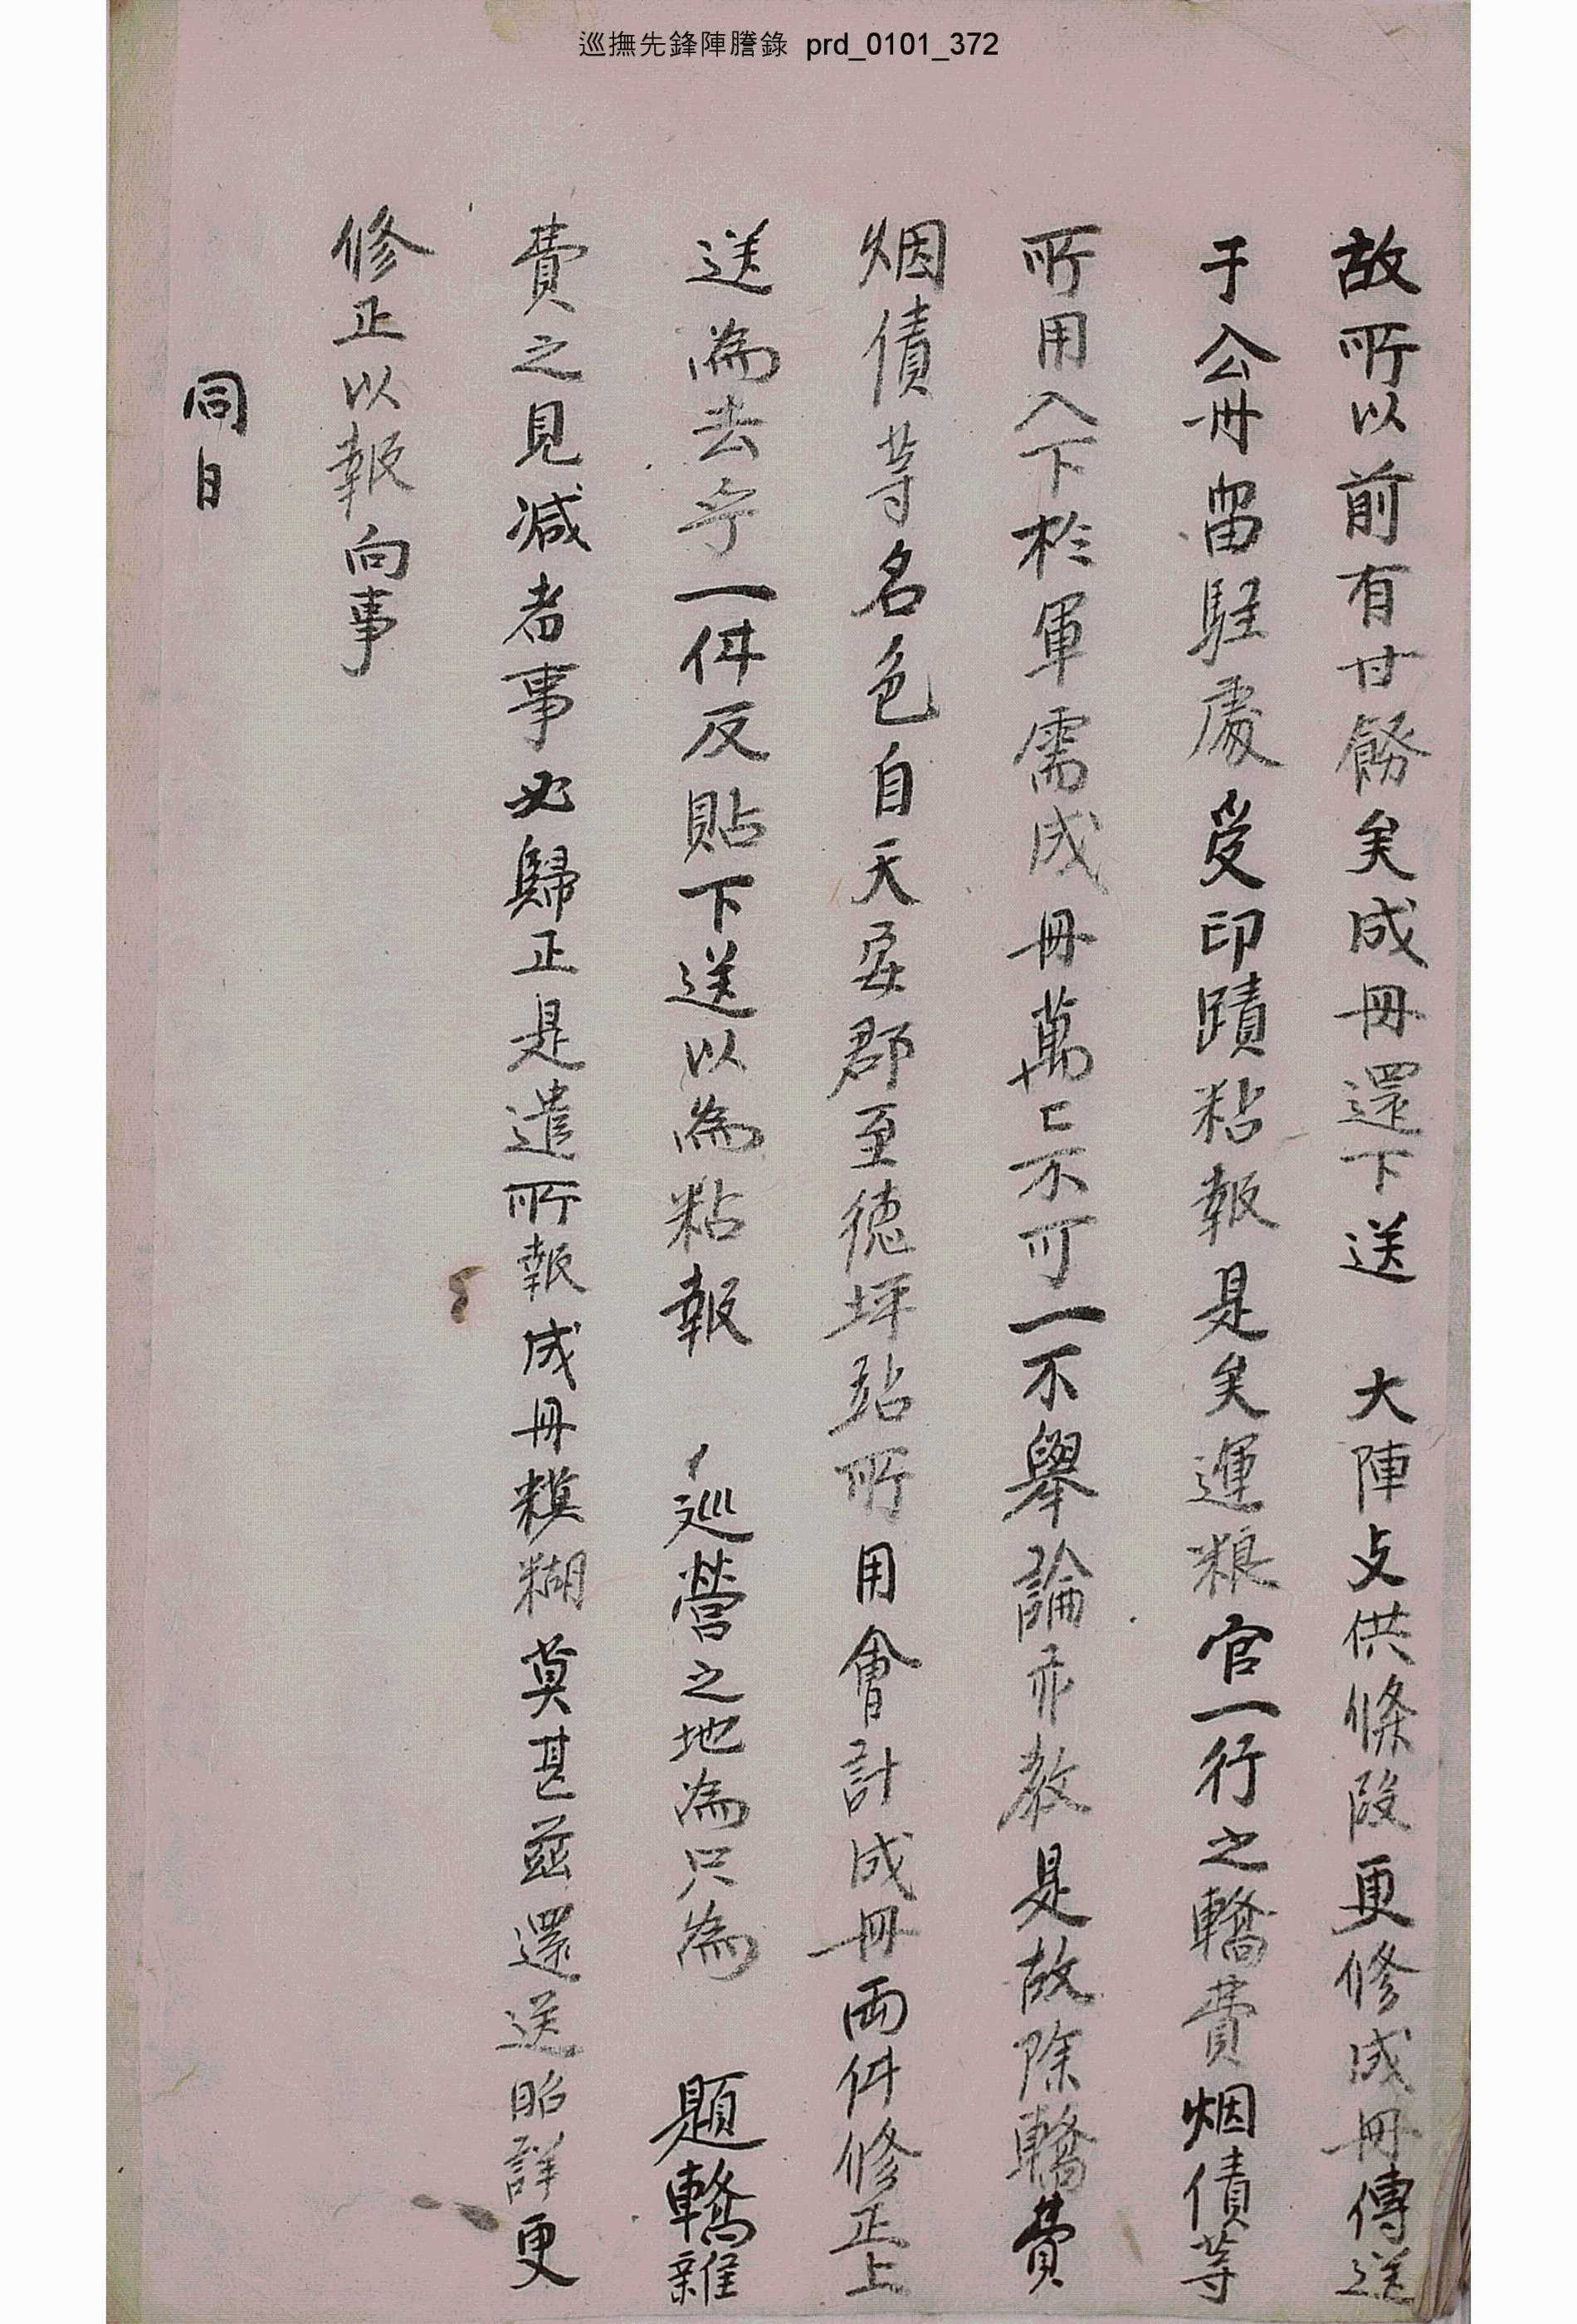 巡撫先鋒陣謄錄 prd_0101_372
故所以前有甘飭矣成冊還下送 大陣支供條段更修成冊傳送
于公州留駐處受印蹟粘報是矣運粮官一行之轎費烟債等
所用入下於軍需成冊萬〻不可一不擧論亦敎是故除轎費
烟債等名色自天安郡至德坪站所用會計成冊両件修正上
送為去乎一件反貼下送以為粘報 巡營之地為只為 題轎雜
費之見减者事必歸正是遣所報成冊糢糊莫甚玆還送昭詳更
修正以報向事
同日